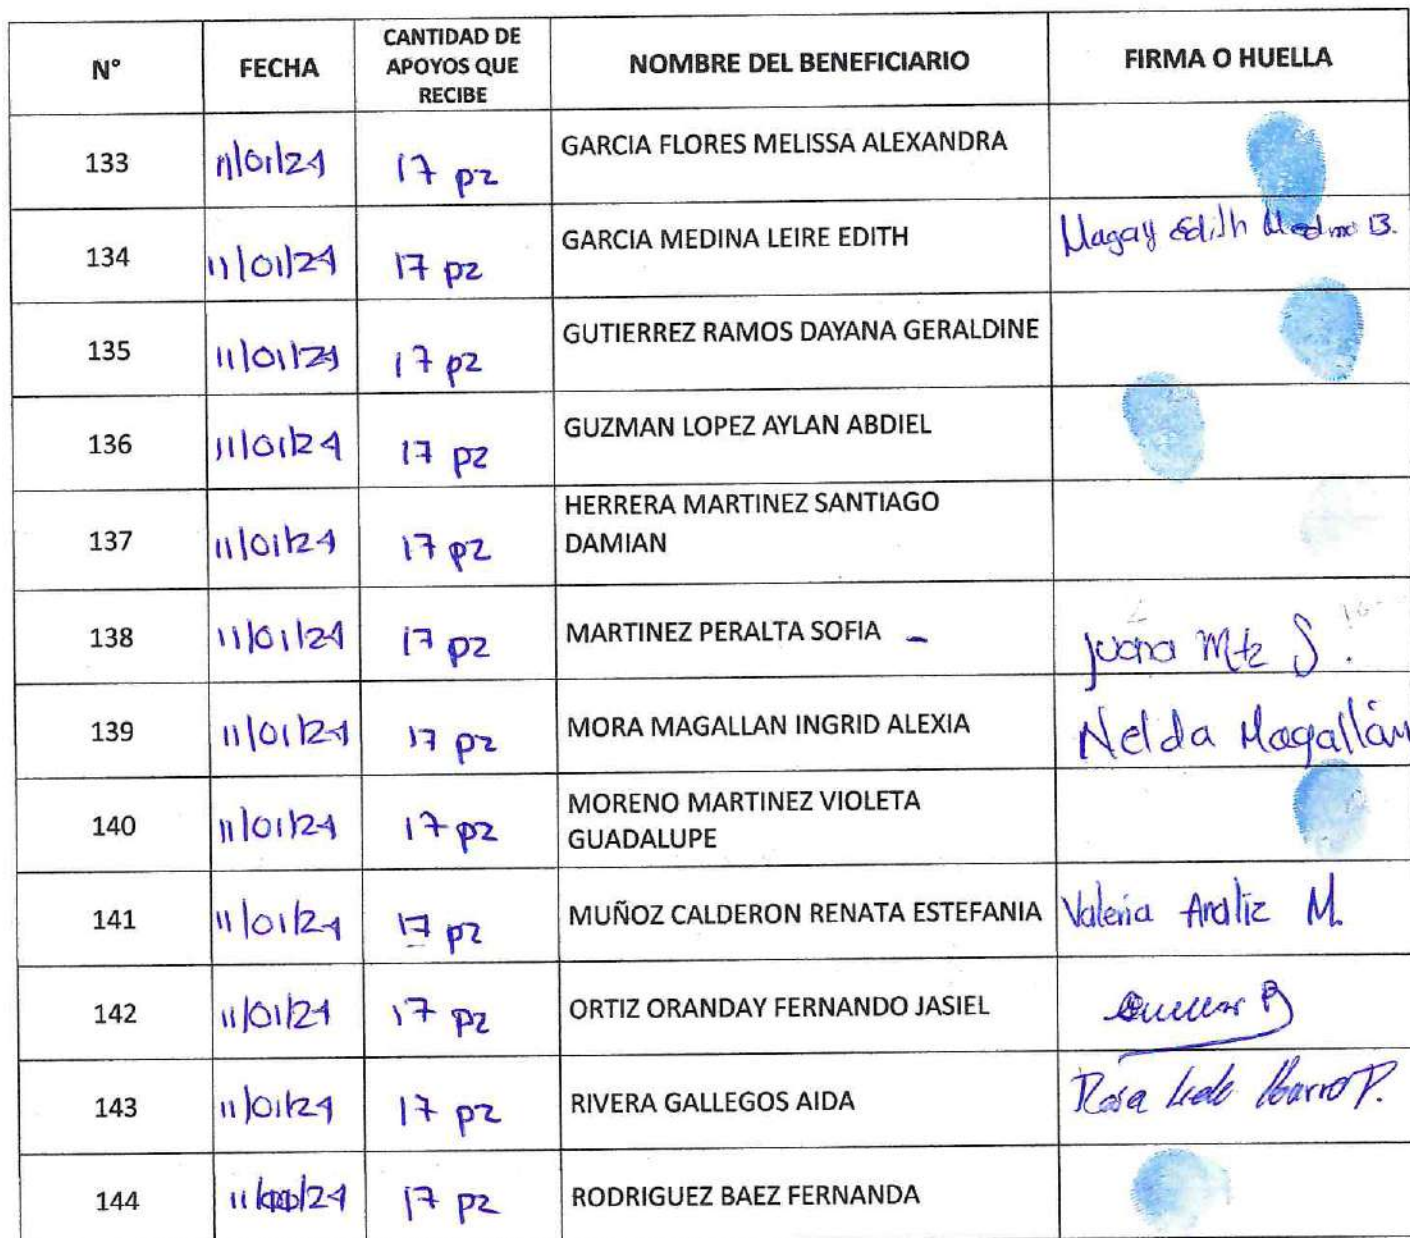 N° FECHA CANTIDAD DE APOYOS QUE RECIBE NOMBRE DEL BENEFICIARIO FIRMA O HUELLA
133 11/01/24 17 pz GARCIA FLORES MELISSA ALEXANDRA
134 11/01/24 17 pz GARCIA MEDINA LEIRE EDITH Magaly Edith Medina B.
135 11/01/24 17 pz GUTIERREZ RAMOS DAYANA GERALDINE
136 11/01/24 17 pz GUZMAN LOPEZ AYLAN ABDIEL
137 11/01/24 17 pz HERRERA MARTINEZ SANTIAGO DAMIAN
138 11/01/24 17 pz MARTINEZ PERALTA SOFIA - Juana Mtz S.
139 11/01/24 17 pz MORA MAGALLAN INGRID ALEXIA Nelda Magallán
140 11/01/24 17 pz MORENO MARTINEZ VIOLETA GUADALUPE
141 11/01/24 17 pz MUÑOZ CALDERON RENATA ESTEFANIA Valeria Araliz M.
142 11/01/24 17 pz ORTIZ ORANDAY FERNANDO JASIEL
143 11/01/24 17 pz RIVERA GALLEGOS AIDA Rosa P.
144 17 pz RODRIGUEZ BAEZ FERNANDA